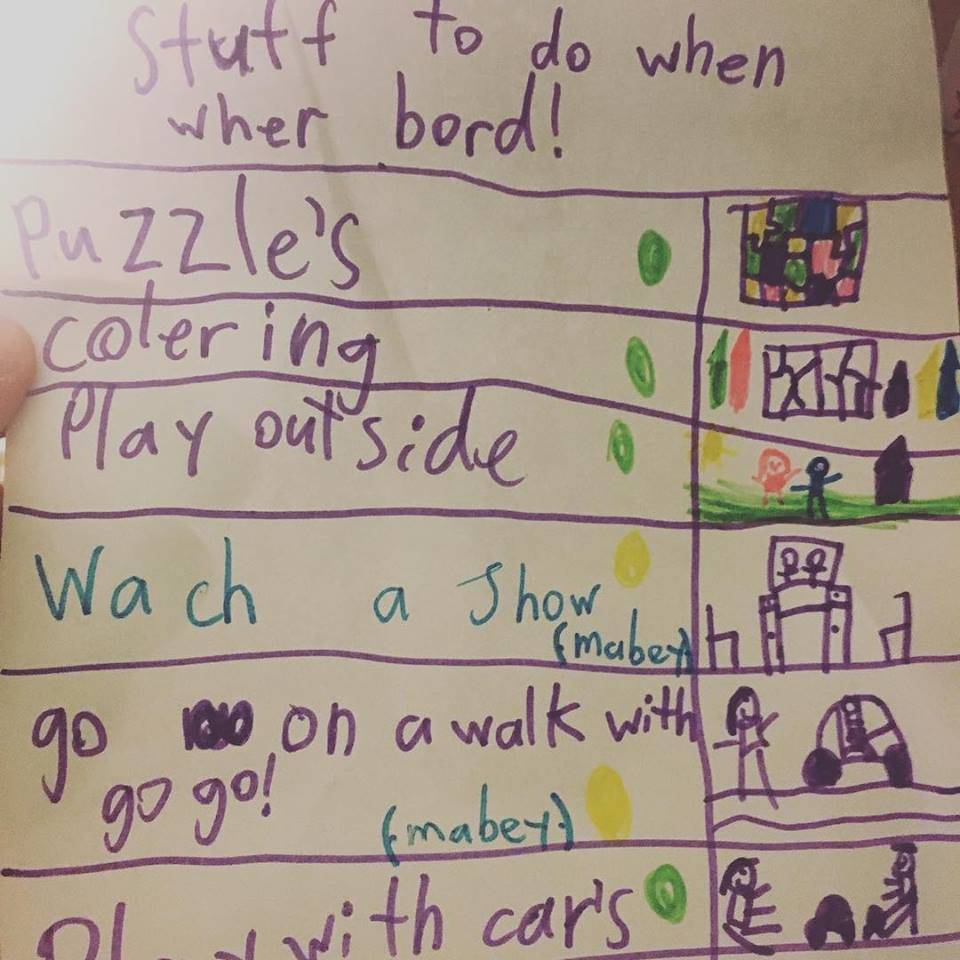 Stuff to do when
wher bord!
Puzzle's
colering
Play outside
Wach a Show
(mabey)
go on a walk with
go go!
(mabey)
Play with car's